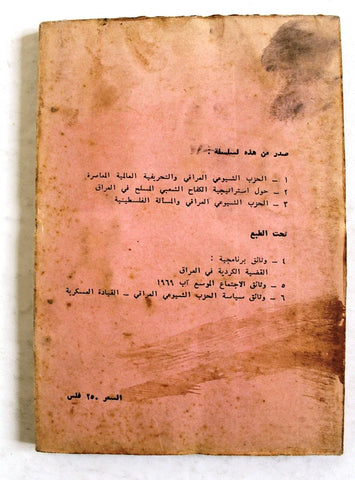 صدر من هذه لسلسلة :
١ – الحزب الشيوعي العراقي والتحريفية العالمية المعاصرة
٢ – حول استراتيجية الكفاح الشعبي المسلح في العراق
٣ – الحزب الشيوعي العراقي والمسألة الفلسطينية
تحت الطبع
٤ – وثائق برنامجية :
القضية الكردية في العراق
٥ – وثائق الاجتماع الموسع آب ١٩٦٩
٦ – وثائق سياسة الحزب الشيوعي العراقي – القيادة العسكرية
السعر ٢٥٠ فلس